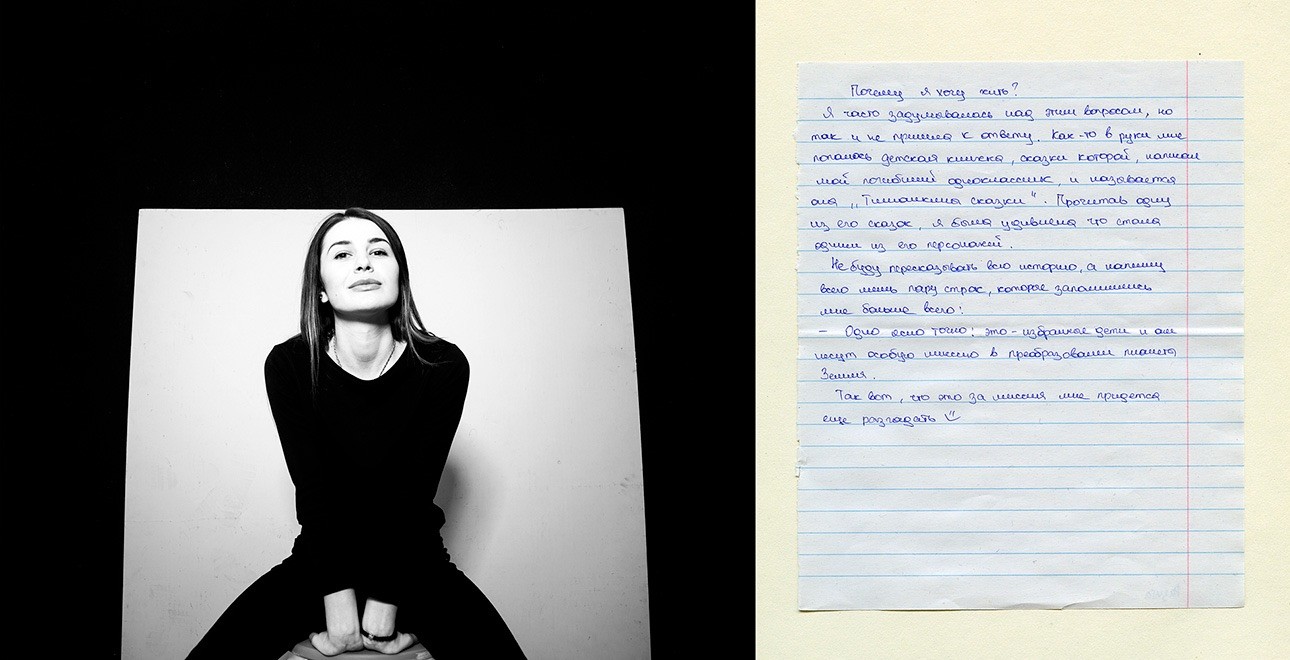 Почему я хочу жить?
Я часто задумывалась над этим вопросом, но
так и не пришла к ответу. Как-то в руки мне
попалась детская книжка, сказки которой, написал
мой погибший одноклассник, и называется
она „Тимошкины сказки". Прочитав одну
из его сказок, я была удивлена что стала
одним из его персонажей.
Не буду пересказывать всю историю, а напишу
всего лишь пару строк, которые запомнились
мне больше всего:
– Одно ясно точно: это - избранные дети и они
несут особую миссию в преобразовании планета
Земля.
Так вот, что это за миссия мне придется
еще разгадать